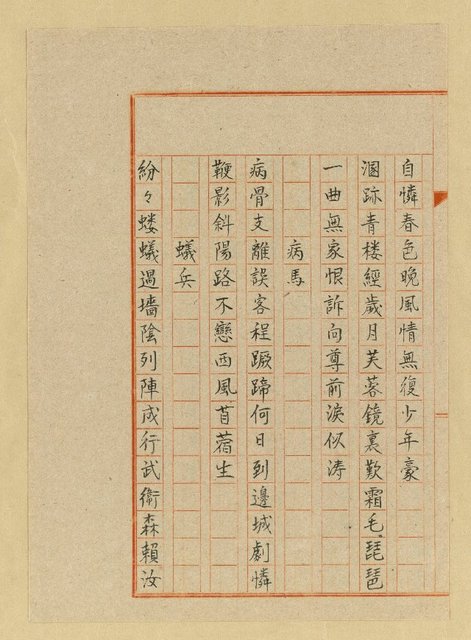 自憐春色晚風情無復少年豪
溷跡青楼經歲月芙蓉鏡裏歎霜毛琵琶
一曲無家恨訴向尊前淚似涛
病馬
病骨支離誤客程蹶蹄何日到邊城劇憐
鞭影斜陽路不戀西風苜蓿生
蟻兵
紛々蝼蟻過墻陰列陣成行武衛森賴汝